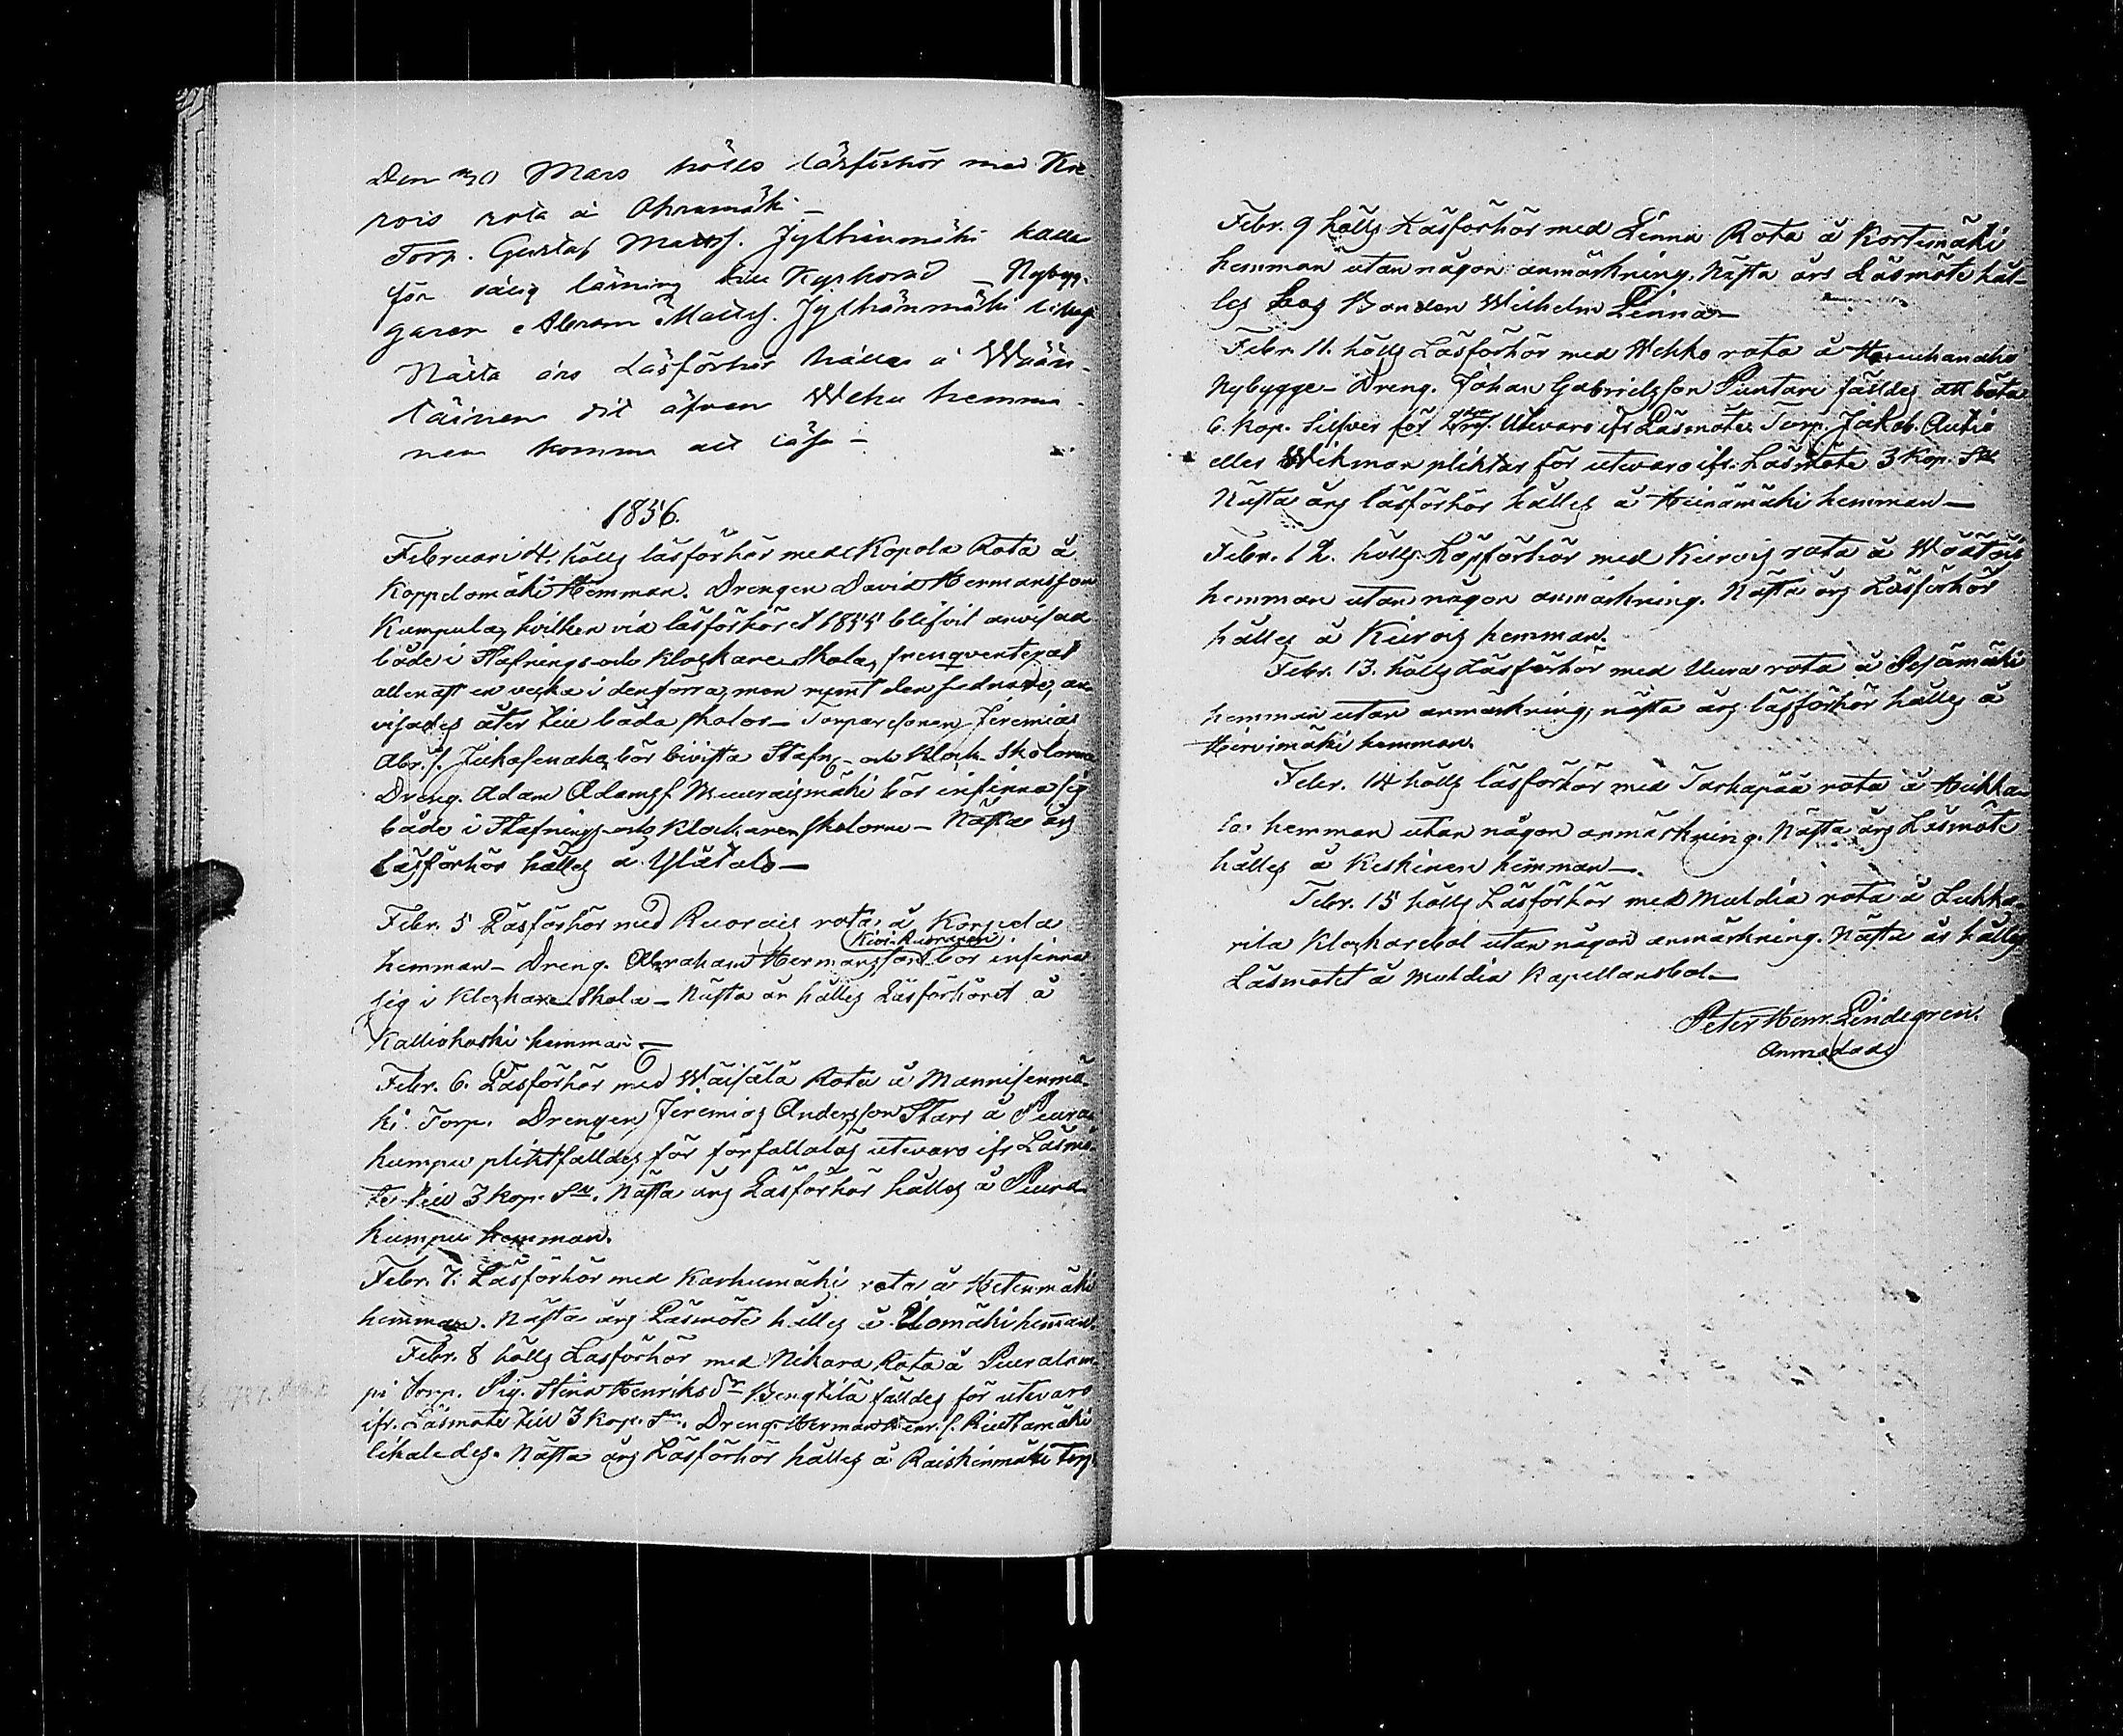 Den 30 Mars hölls läsförhör med Kie-
rois rota å Ohramäki –
Torp. Gustaf Mattss. Jylhänmäki kallas
för dålig läsning till Kyrkoråd – Nybyg-
garen Abram Mattss. Jylhänmäki likaså
Nästa års Läsförhör hålles å Wään-
täinen dit äfven Wehu hemma-
nen komma att läsa –
1856.
Februari 4. hölls läsförhör med Kopola Rota å
Koppelomäki Hemman. Drengen David Hermansson
Kumpula, hvilken vid läsförhöret 1855 blifvit anvisad
både i Stafnings- och Klockare Skola, frenqventerat
allenast en vecka i den förra, men rymt den sednare, an-
visades åter till båda skolor – Torparesonen Jeremias
Abr. s. Jukasenaho bör bivista Stafn.- och Klock. Skolorna
Dreng. Adam Adamss. Muuraismäki bör infinna sig
både i Stafnings- och Klockaren skolorne – Nästa års
Läsförhör hålles å Ylätalo –
Febr. 5 Läsförhör med Ruorais rota å Korpela
Kivi-Ruoranen
hemman – Dreng. Abraham Hermansson bör infinna
sig i Klockare Skola – Nästa år hålles Läsförhöret å
Kalliokoski hemman –
Febr. 6. Läsförhör med Wäisälä Rota å Mannisenmä-
ki Torp. Drengen Jeremias Andersson Starr å Peura-
kumpu pliktfälldes för förfallolös utevaro ifr. Läsmö-
te till 3 Kop. Sr. Nästa års Läsförhör hålles å Peura-
kumpu hemman.
Febr. 7. Läsförhör med Karhumäki rota å Hetenmäki
hemman. Nästa års Läsmöte hålles å Uomäki hemman.
Febr. 8 hölls Läsförhör med Nikara Rota å Peuralam-
pi Torp. Pig. Stina Henriksdr Bengtilä fälldes för utevaro
ifr. Läsmöte till 3 Kop. Sr. Dreng. Herman Henr. s. Riuttamäki
likaledes. Nästa års Läsförhör hålles å Raiskinmäki Torp.
Febr. 9 hölls Läsförhör med Linna Rota å Kortemäki
hemman utan någon anmärkning. Nästa års Läsmöte hål-
les hos Bonden Wilhelm Linna –
Febr. 11. hölls Läsförhör med Wehko rota å
Nybygge – Dreng. Johan Gabrielsson Puntari fälldes att böta
6. Kop. Silfver för utevaro ifr. Läsmöte. Torp. Jakob Autio
eller Wikman pliktar för utevaro ifr. Läsmöte 3 Kop. Sr
Nästa års läsförhör hålles å Heinämäki hemman –
Febr. 12. hölls Läsförhör med Kierois rota å Wäätäis
hemman utan någon anmärkning. Nästa års Läsförhör
hålles å Kierois hemman.
Febr. 13. hölls Läsförhör med Uura rota å Pojämäki
hemman utan anmärkning; nästa års läsförhör hålles å
Hirvimäki hemman.
Febr. 14 hölls läsförhör med Tarhapää rota å Hukka-
la hemman utan någon anmärkning. Nästa års Läsmöte
hålles å Keskinen hemman –
Febr. 15 hölls Läsförhör med Multia rota å Lukka-
rila Klockarebol utan någon anmärkning. Nästa år hålles
Läsmötet å Multia Kapellansbol –
Peter Henr. Lindegren.